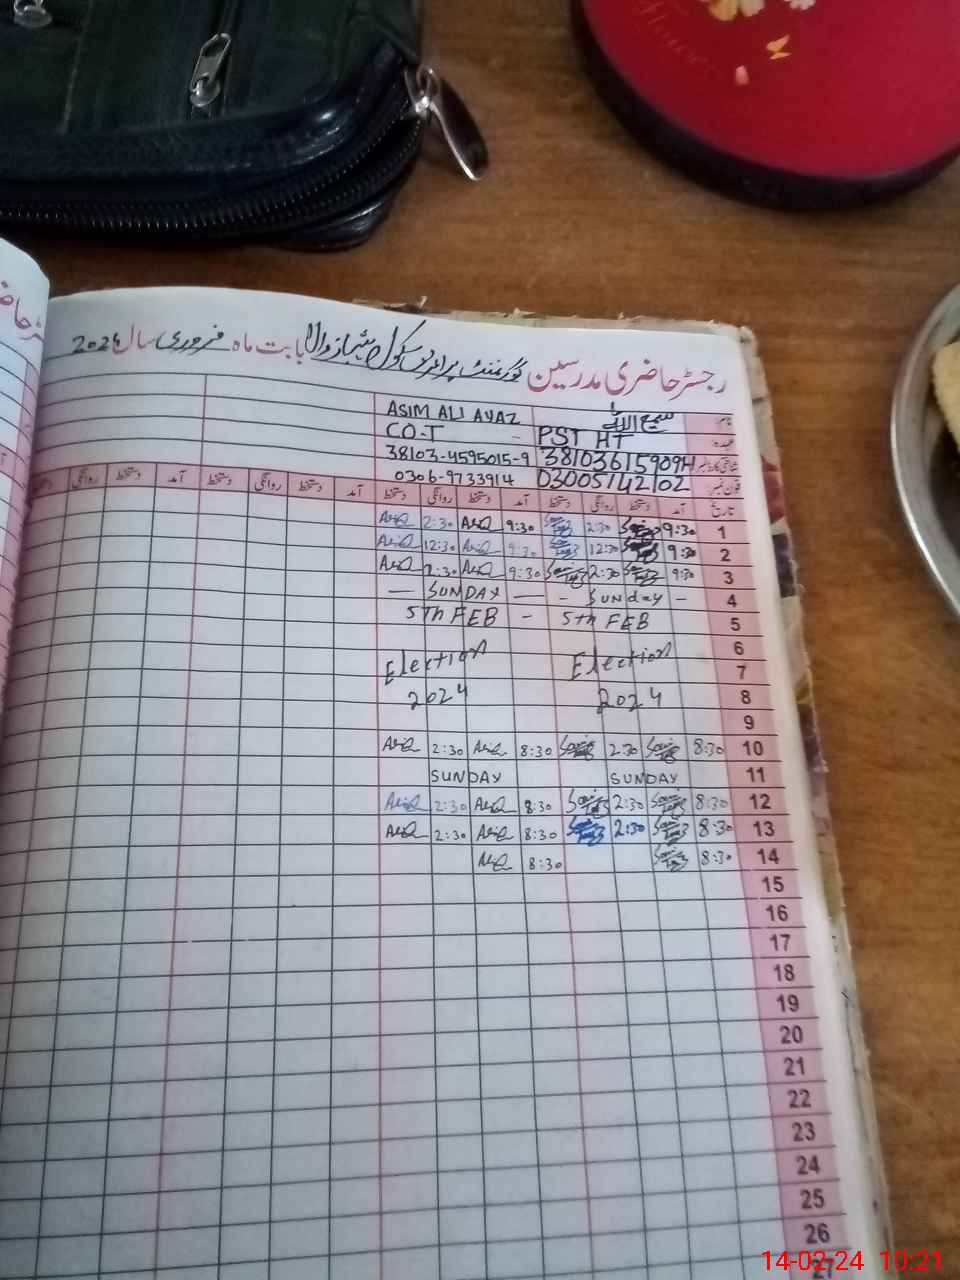 رجسٹر حاضری مدرسین گورنمنٹ پرائمری سکول شہباز والا بابت ماہ فروری سال 2024
نام: سمیع اللہ ASIM ALI AYAZ
عہدہ: PST HT CO-T
شناختی کارڈ نمبر 38103615909H 38103-4595015-9
فون نمبر: 03005142102 0306-9733914
تاریخ آمد دستخط روانگی دستخط آمد دستخط روانگی دستخط آمد دستخط روانگی دستخط آمد دستخط روانگی
1 9:30 2:30 9:30 2:30
2 9:30 12:30 9:30 12:30
3 9:30 2:30 9:30 2:30
4 — SUNDAY — - SUNday -
5 5th FEB - 5th FEB
6
7 Election Election
8 2024 2024
9
10 8:30 2:30 8:30 2:30
11 SUNDAY SUNDAY
12 8:30 2:30 8:30 2:30
13 8:30 2:30 8:30 2:30
14 8:30 8:30
15
16
17
18
19
20
21
22
23
24
25
26
27
14-02-24 10:21